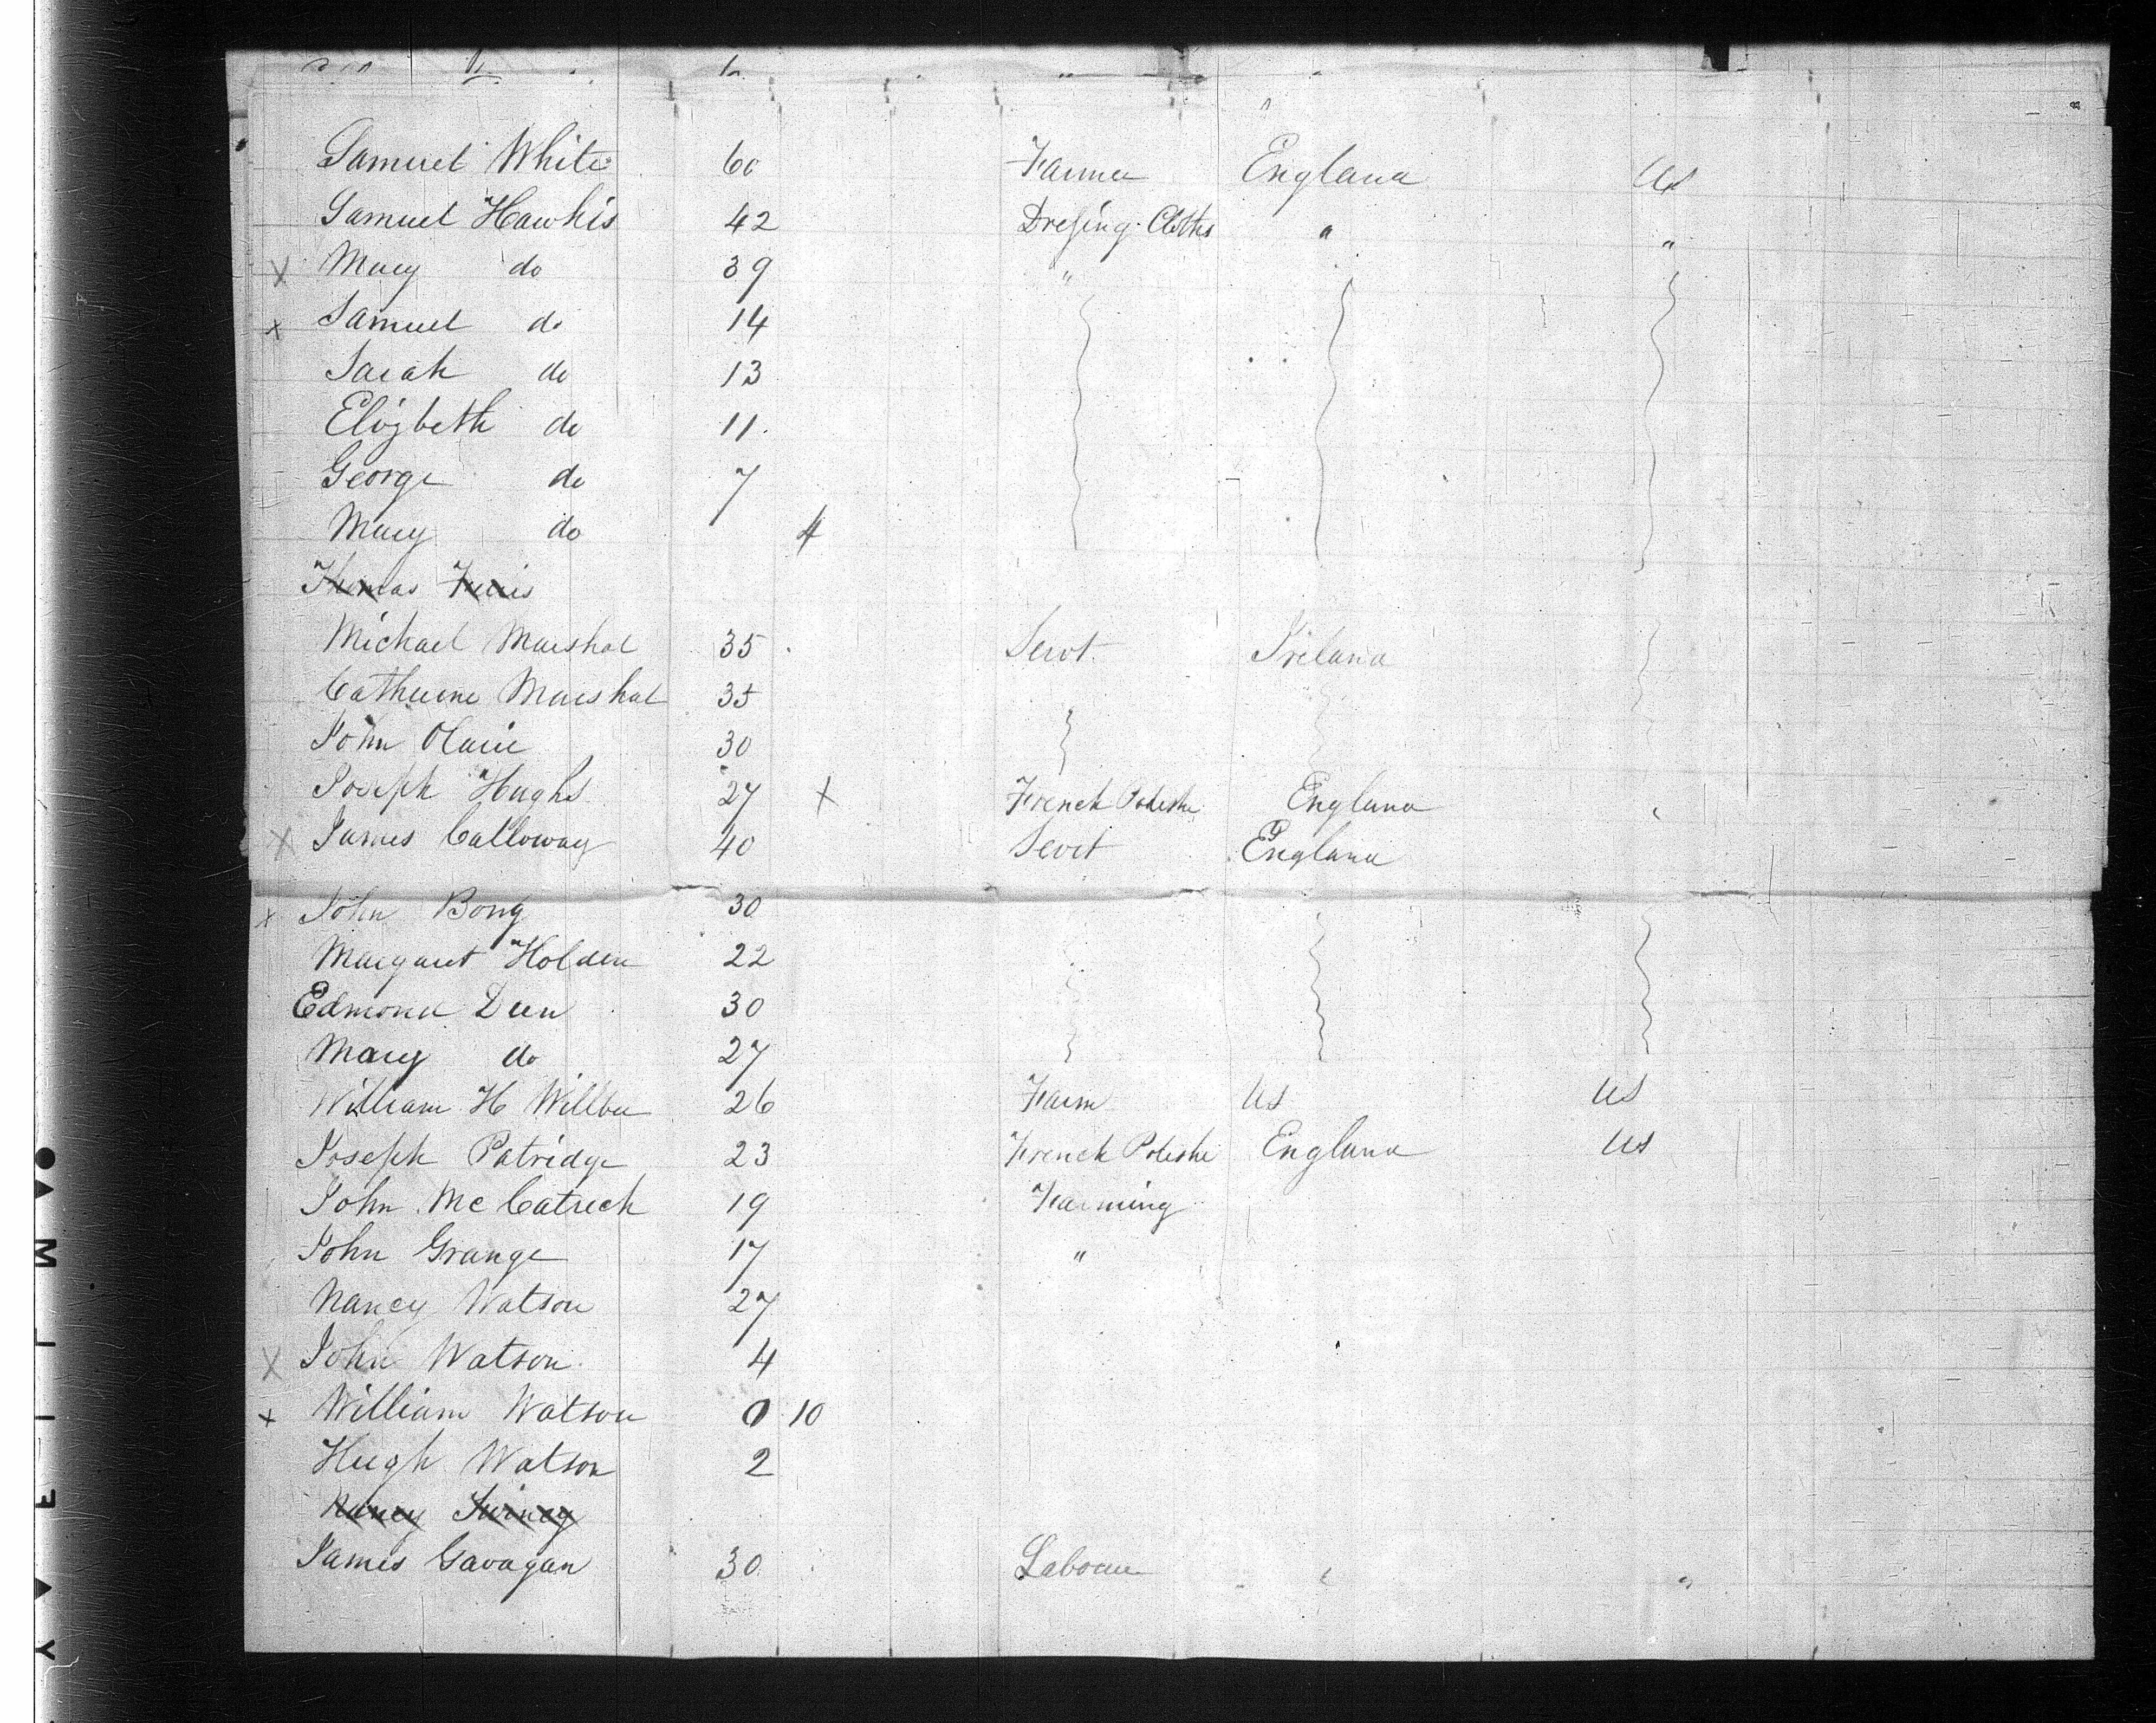 Samuel White 60 Farmer England US
Samuel Hawkis 42 Dressing Cloths " "
X Mary do 39 "
x Samuel do 14
Sarah do 13
Elizbeth do 11
George do 7
Mary do 4
Thomas
Michael Marshal 35 Servt Ireland
Catherine Marshal 35
John 30
Joseph Hughs 27 X French Polishe England
X James Calloway 40 Servt England
x John Bong 30
Margaret Holden 22
Edmond Deen 30
Mary do 27
William H Willbu 26 Farm US US
Joseph Patridge 23 French Polishe England US
John Mc 19 Farming
John Grange 17 "
Nancy Watson 27
X John Watson 4
x William Watson 0 10
Hugh Watson 2
Nancy
James Gavagan 30 Labour "